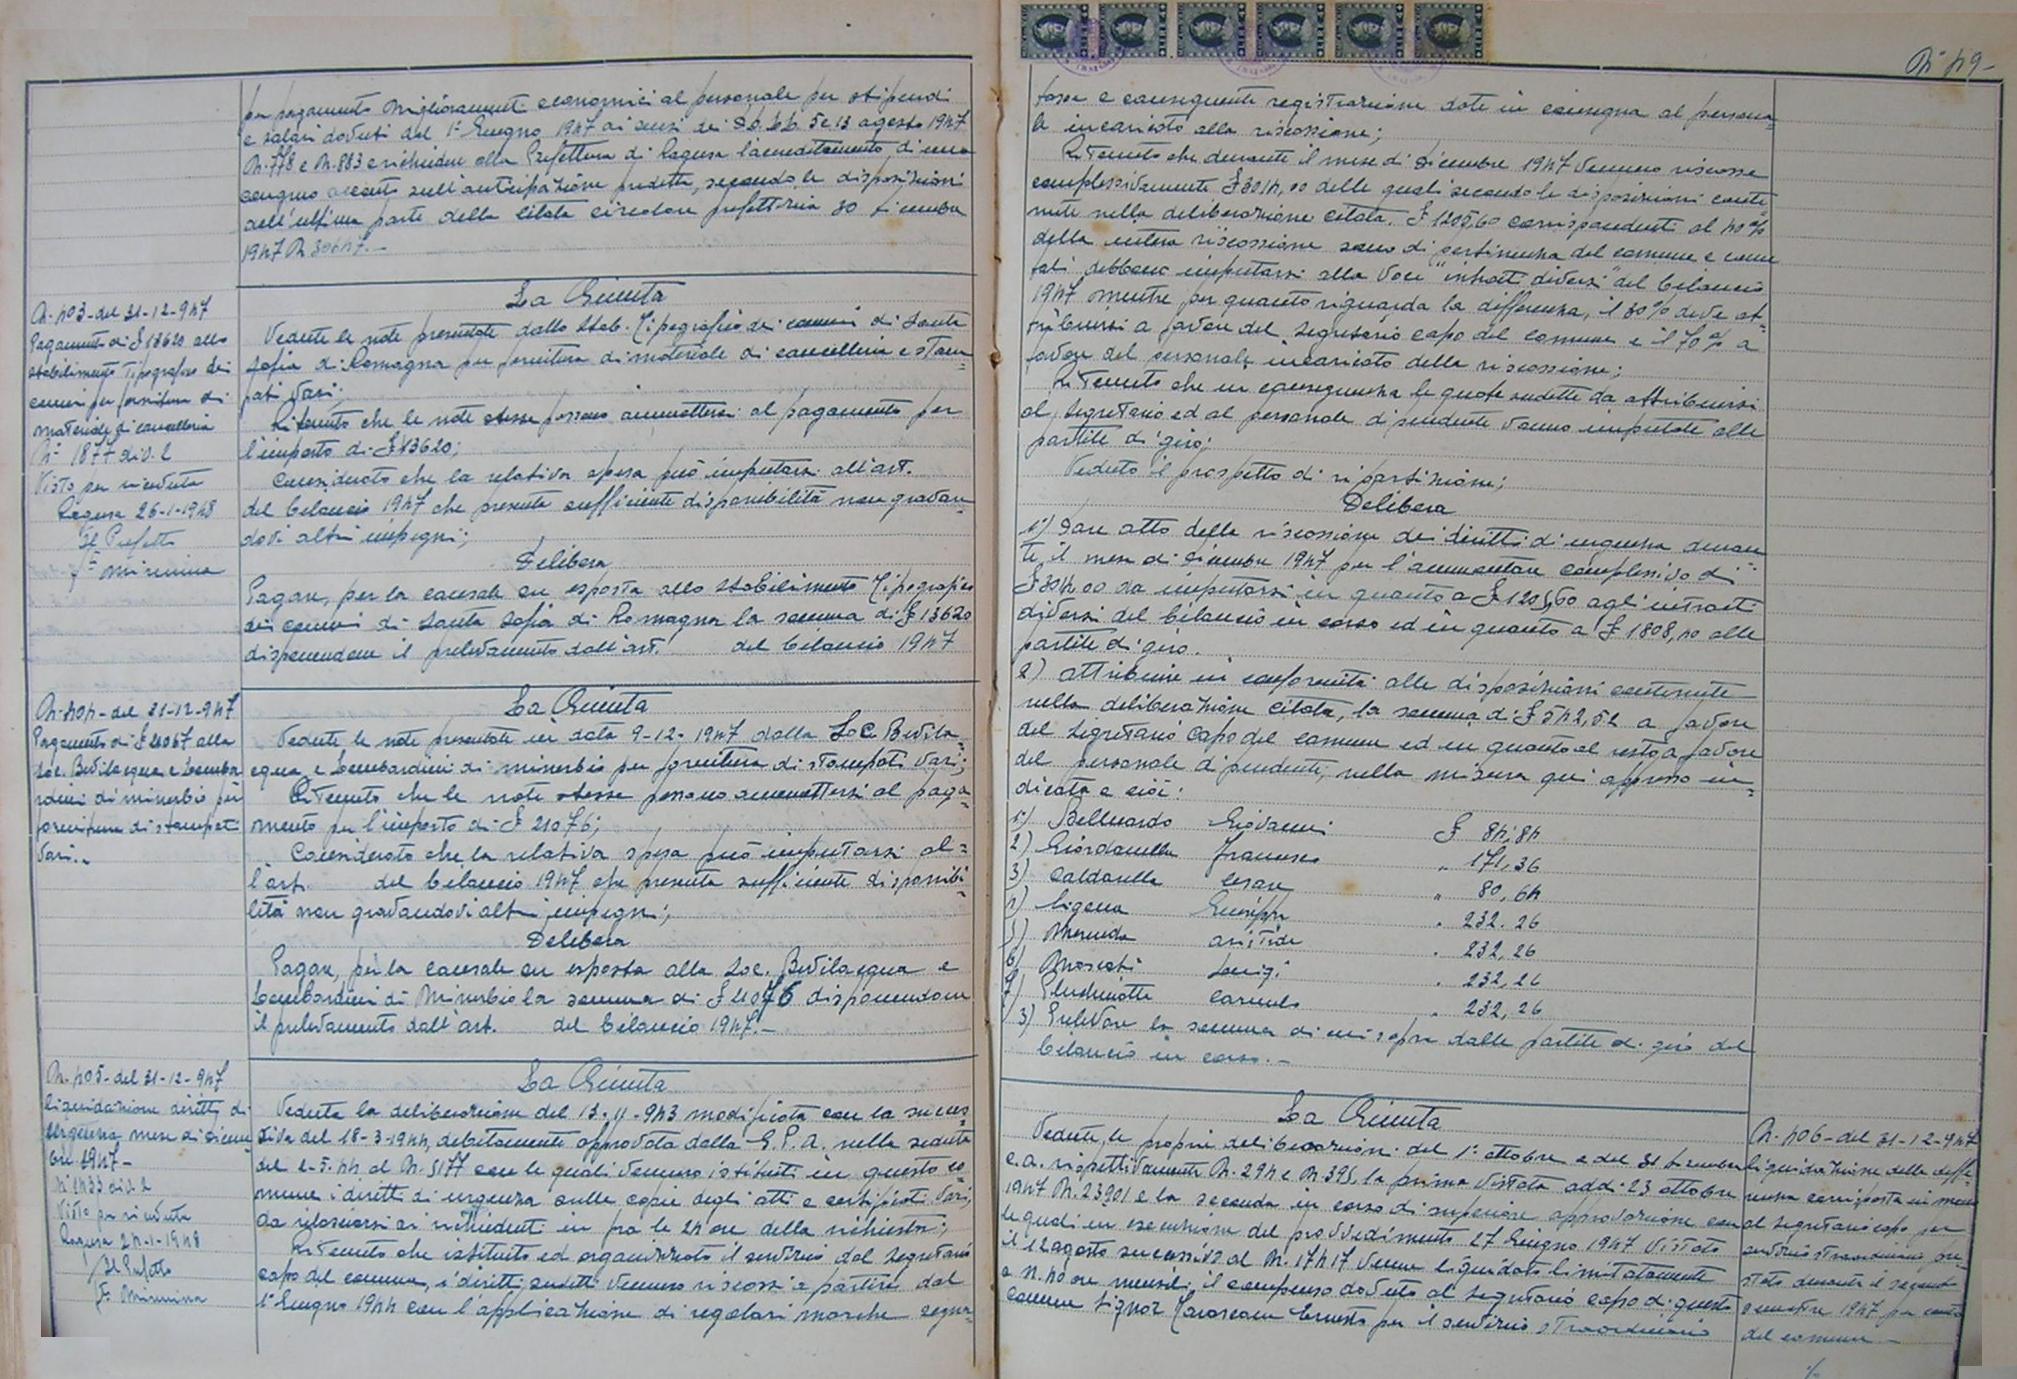 per pagamento miglioramenti economici al personale per stipendi
e salari dovuti dal 1° Giugno 1947 ai sensi dei DD. LL. 5 e 13 agosto 1947
N. 778 e N. 883 e richiedere alla Prefettura di Ragusa l'accreditamento di una
congruo acconto sull'anticipazione predetta, secondo le disposizioni
dell'ultima parte della citata circolare prefettizia 30 dicembre
1947 N. 30647.-
N. 403- del 31-12-947
Pagamento di £ 13620 allo
stabilimento Tipografico dei
comuni per fornitura di
materiale di cancelleria
N° 1877 div. 2
Visto per ricevuta
Ragusa 26-1-1948
Il Prefetto
La Giunta
Vedute le note presentate dallo Stab. Tipografico dei comuni di Santa
Sofia di Romagna per fornitura di materiale di cancelleria e stam
pati vari;
Ritenuto che le note stesse possono ammettersi al pagamento per
l'importo di £ 13620;
Considerato che la relativa spesa può imputarsi all'art.
del bilancio 1947 che presenta sufficiente disponibilità non gravan-
dovi altri impegni;
Delibera
Pagare, per la causale su esposta allo Stabilimento Tipografico
dei comuni di Santa Sofia di Romagna la somma di £ 13620
disponendone il prelevamento dall'art. del bilancio 1947
N. 404- del 31-12-947
Pagamento di £ alla
Soc. Bevilacqua e Lomba
rdini di Minerbio per
fornitura di stampati
vari.-
La Giunta
Vedute le note presentate in data 9-12-1947 dalla Soc. Bevila-
cqua e Lombardini di Minerbio per fornitura di stampati vari;
Ritenuto che le note stesse possono ammettersi al paga-
mento per l'importo di £ 21076;
Considerato che la relativa spesa può imputarsi al-
l'art. del bilancio 1947 che presenta sufficiente disponibi-
lità non gravandovi altri impegni;
Delibera
Pagare, per la causale su esposta alla Soc. Bevilacqua e
Lombardini di Minerbio la somma di £ 21076 disponendone
il prelevamento dall'art. del bilancio 1947.-
N. 405- del 31-12-947
liquidazione diritti di
urgenza mese di dicem
bre 1947-
N° 1433 div. 2
Visto per ricevuta
Ragusa 24-1-1948
Il Prefetto
La Giunta
Veduta la deliberazione del 13-11-943 modificata con la succes
siva del 18-3-1944, debitamente approvata dalla G.P.A. nella seduta
del 2-5-44 al N. 5177 con le quali vennero istituiti in questo co
mune i diritti di urgenza sulle copie degli atti e certificati vari,
da rilasciarsi ai richiedenti in fra le 24 ore della richiesta;
Ritenuto che istituito ed organizzato il servizio dal Segretario
capo del comune, i diritti sudetti vennero riscossi a partire dal
1° Giugno 1944 con l'applicazione di regolari marche segna-
N° 49-
tasse e conseguente registrazione date in consegna al persona-
le incaricato alla riscossione;
Ritenuto che durante il mese di dicembre 1947 vennero riscosse
complessivamente £ 3014,00 delle quali secondo le disposizioni conte-
nute nella deliberazione citata, £ 1205,60 corrispondenti al 40%
della intera riscossione sono di pertinenza del comune e come
tali debbono imputarsi alla voce "introiti diversi" del bilancio
1947 mentre per quanto riguarda la differenza, il 30% deve at-
tribuirsi a favore del Segretario capo del comune e il 70% a
favore del personale incaricato della riscossione;
Ritenuto che in conseguenza le quote sudette da attribuirsi
al Segretario ed al personale dipendente vanno imputate alle
partite di giro;
Veduto il prospetto di ripartizione;
Delibera
1°) Dare atto della riscossione dei diritti di urgenza duran
te il mese di dicembre 1947 per l'ammontare complessivo di
£ 3014,00 da imputarsi in quanto a £ 1205,60 agli introiti
diversi del bilancio in corso ed in quanto a £ 1808,40 alle
partite di giro.
2) Attribuire in conformità alle disposizioni contenute
nella deliberazione citata, la somma di £ 542,52 a favore
del Segretario capo del comune ed in quanto al resto a favore
del personale dipendente, nella misura qui appresso in-
dicata e cioè:
1°) Belluardo Giovanni £ 84,84
2) Giordanella Francesco " 171,36
3) Caldarella Cesare " 80,64
4) Ligena Giuseppe " 232.26
5) Aristide " 232,26
6) Moscati Luigi " 232,26
7) Pluchinotta Carmelo " 232,26
3) Prelevare la somma di cui sopra dalle partite di giro del
bilancio in corso.-
La Giunta
Vedute le proprie deliberazioni del 1° ottobre e del 31 dicembre
c.a. rispettivamente N. 294 e N. 395, la prima vistata addì 23 ottobre
1947 N. 23901 e la seconda in corso di superiore approvazione con
le quali in esecuzione del provvedimento 27 Giugno 1947 vistato
il 12 agosto successivo al N. 17417 venne liquidato limitatamente
a N. 40 ore mensili il compenso dovuto al Segretario capo di questo
comune Signor Ernesto per il servizio straordinario
N. 406- del 31-12-947
liquidazione della diffe
renza corrisposta in meno
al segretario capo per
servizio straordinario pre-
stato durante il secondo
semestre 1947 per conto
del comune-